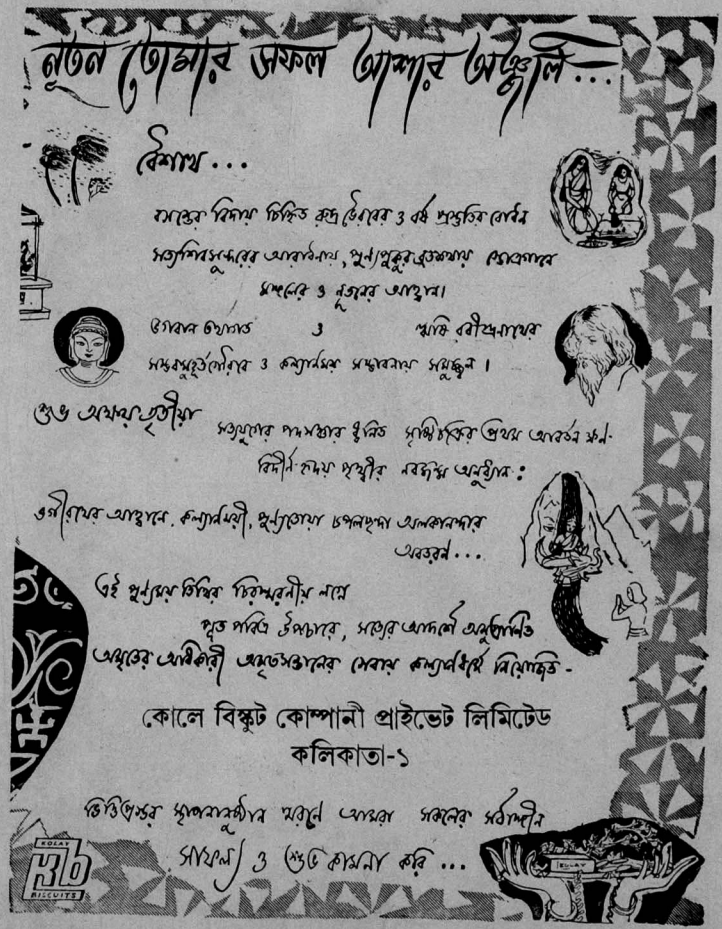 নূতন তোমার সফল আশার অঞ্জলি...
বৈশাখ ...
বসন্তের বিদায় চিহ্নিত রুদ্র ভৈরবের ও বর্ষ প্রস্তুতির বোধন
সত্যশিবসুন্দরের আরাধনায়, পুণ্যপুকুর ব্রতশয্যায় স্তোত্রগানে
মঙ্গলের ও নূতনের আহ্বান।
ভগবান তথাগত ও ঋষি রবীন্দ্রনাথের
সম্ভবমুহূর্তগৌরবে ও কল্যাণময় সম্ভাবনায় সমুজ্জ্বল।
শুভ অক্ষয়তৃতীয়া
সত্যযুগের পদসঞ্চার ধ্বনিত সৃষ্টিচক্রের প্রথম আবর্তন ক্ষণ-
বিদীর্ণ হৃদয় পৃথ্বীর নবজন্ম অনুধ্যান:
ভগীরথের আহ্বানে, কল্যাণময়ী, পুণ্যতোয়া চপলছন্দা অলকানন্দার
অবতরণ...
এই পুণ্যময় তিথির চিরস্মরণীয় লগ্নে
পূত পবিত্র উপচারে, সত্যের আদর্শে অনুপ্রাণিত
অমৃতের অধিকারী অমৃতসন্তানের সেবায় কল্যাণধর্মে নিয়োজিত-
কোলে বিস্কুট কোম্পানী প্রাইভেট লিমিটেড
কলিকাতা-১
ভিত্তিপ্রস্তর স্থাপনানুষ্ঠান স্মরণে আমরা সকলের সর্বাঙ্গীন
সাফল্য ও শুভ কামনা করি ...
KOLAY
Kb
BISCUITS
KOLAY